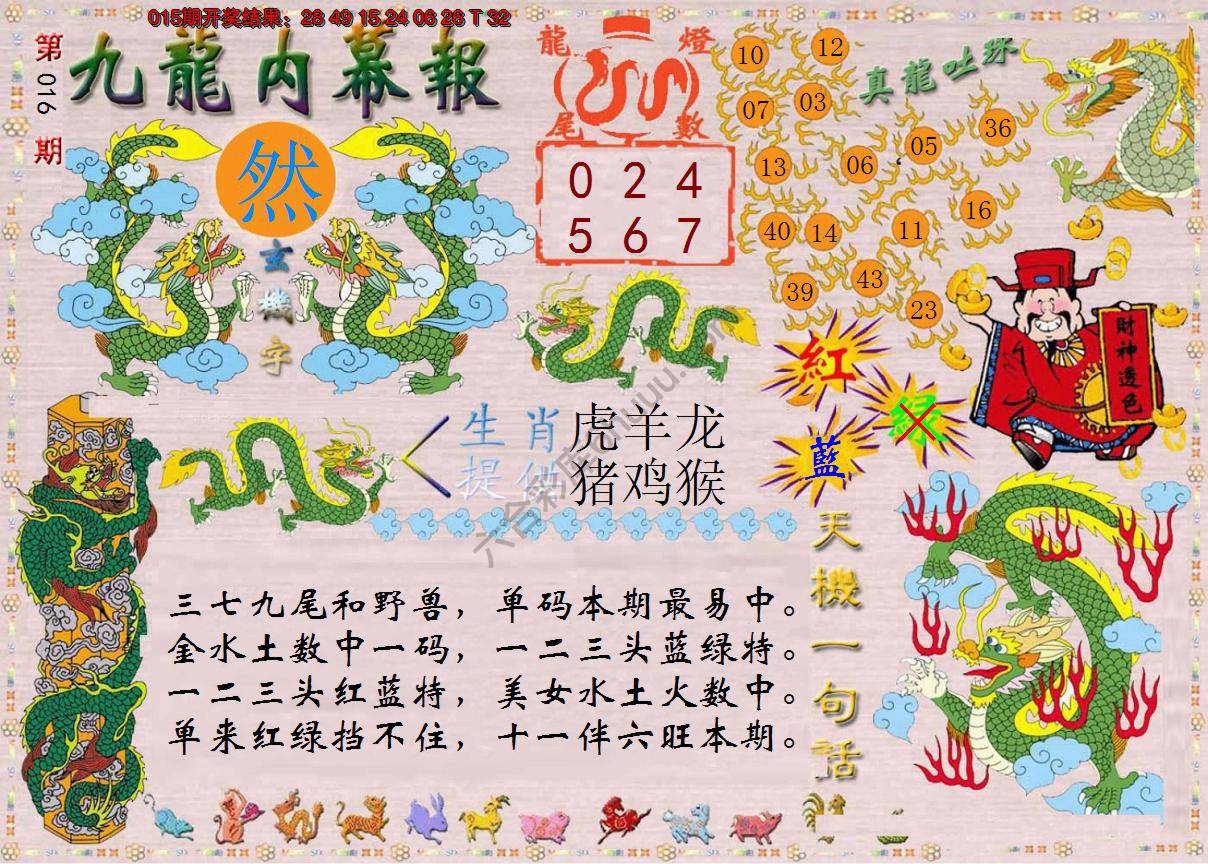 015期开奖结果：28 49 15 24 06 26 T 32
第016期
九龍内幕報
然
玄機字
龍燈
尾數
0 2 4
5 6 7
真龍吐珠
10
12
07
03
13
06
05
36
40
14
11
16
39
43
23
財神透色
紅
绿
藍
生肖
提供
虎羊龙
猪鸡猴
天機一句話
三七九尾和野兽，单码本期最易中。
金水土数中一码，一二三头蓝绿特。
一二三头红蓝特，美女水土火数中。
单来红绿挡不住，十一伴六旺本期。